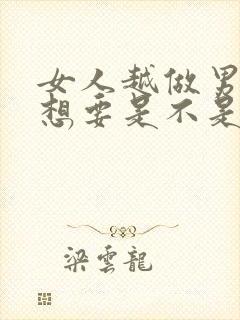 女人越做男
想要是不是
梁雲龍